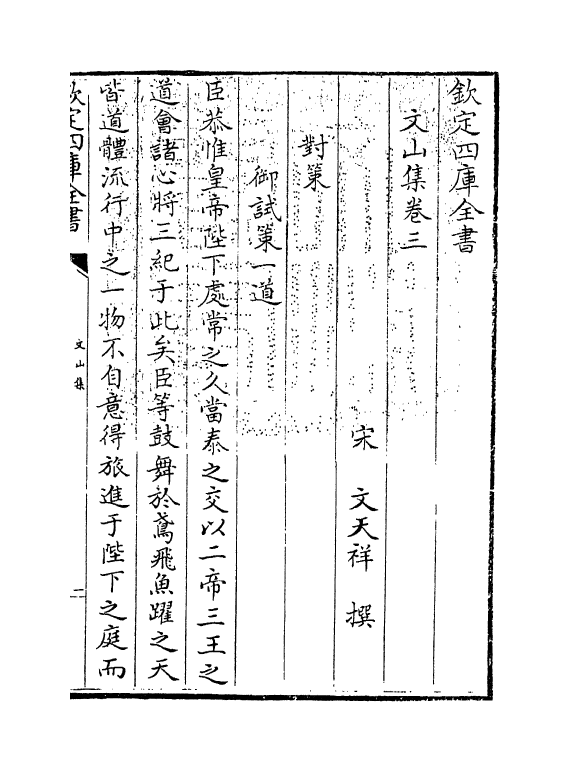 欽定四庫全書
文山集卷三
宋　文天祥　撰
對策
御試策一道
臣恭惟皇帝陛下處常之久當泰之交以二帝三王之
道會諸心將三紀于此矣臣等鼓舞於鳶飛魚躍之天
皆道體流行中之一物不自意得旅進于陛下之庭而
欽定四庫全書
文山集